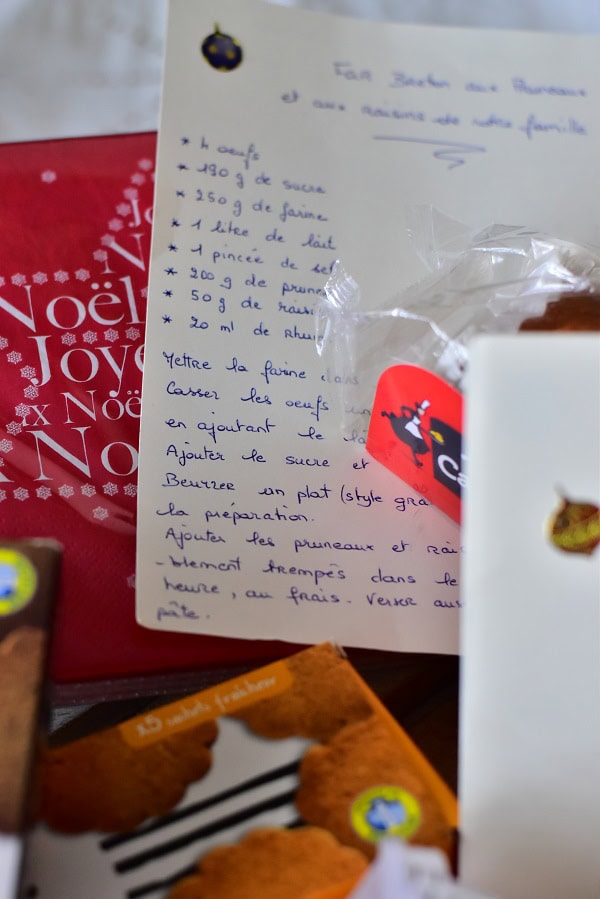 Far Breton aux Pruneaux
et aux raisins de votre famille
* 4 oeufs
* 190 g de sucre
* 250 g de farine
* 1 litre de lait
* 1 pincée de sel
* 200 g de prune
* 50 g de raisi
* 20 ml de Rhum
Mettre la farine dans
Casser les oeufs un
en ajoutant le la
Ajouter le sucre et
Beurrer un plat (style gra
la préparation.
Ajouter les pruneaux et rais
-blement trempés dans le
heure, au frais. Verser aus
pâte.
Jo
N
Noël
Joye
x Noë
x No
Ca
25 sachets fraîcheur